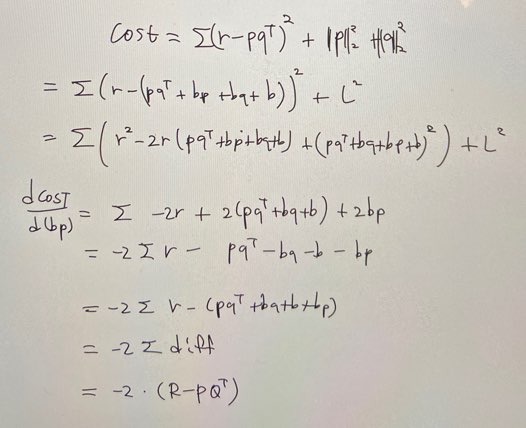 Cost = Σ(r-pqᵀ)² + ||p||₂² + ||q||₂²
= Σ(r-(pqᵀ+bp+bq+b))² + L²
= Σ(r²-2r(pqᵀ+bp+bq+b)+(pqᵀ+bq+bp+b)²)+L²
dcost/d(bp) = Σ -2r + 2(pqᵀ+bq+b)+2bp
= -2Σ r - pqᵀ-bq-b-bp
= -2Σ r-(pqᵀ+bq+b+bp)
= -2Σ diff
= -2·(R-pQᵀ)